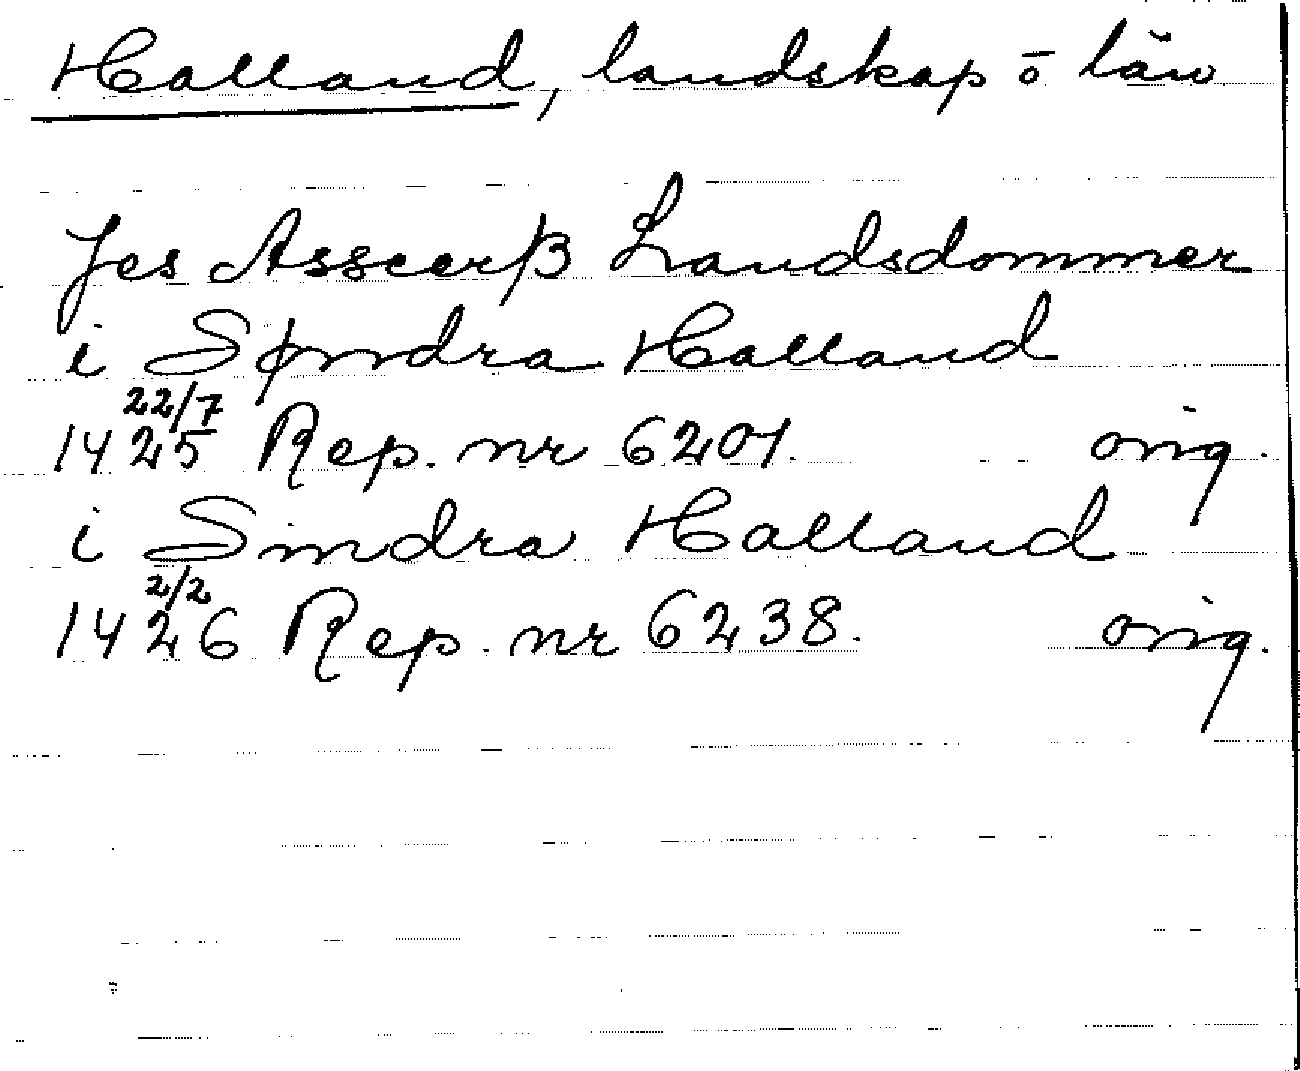 Halland, landskap o län
Jes Assserß Landsdommer
i Søndra Halland
22/7
1425 Rep. nr 6201. orig.
i Sindra Halland
2/2
1426 Rep. nr 6238. orig.